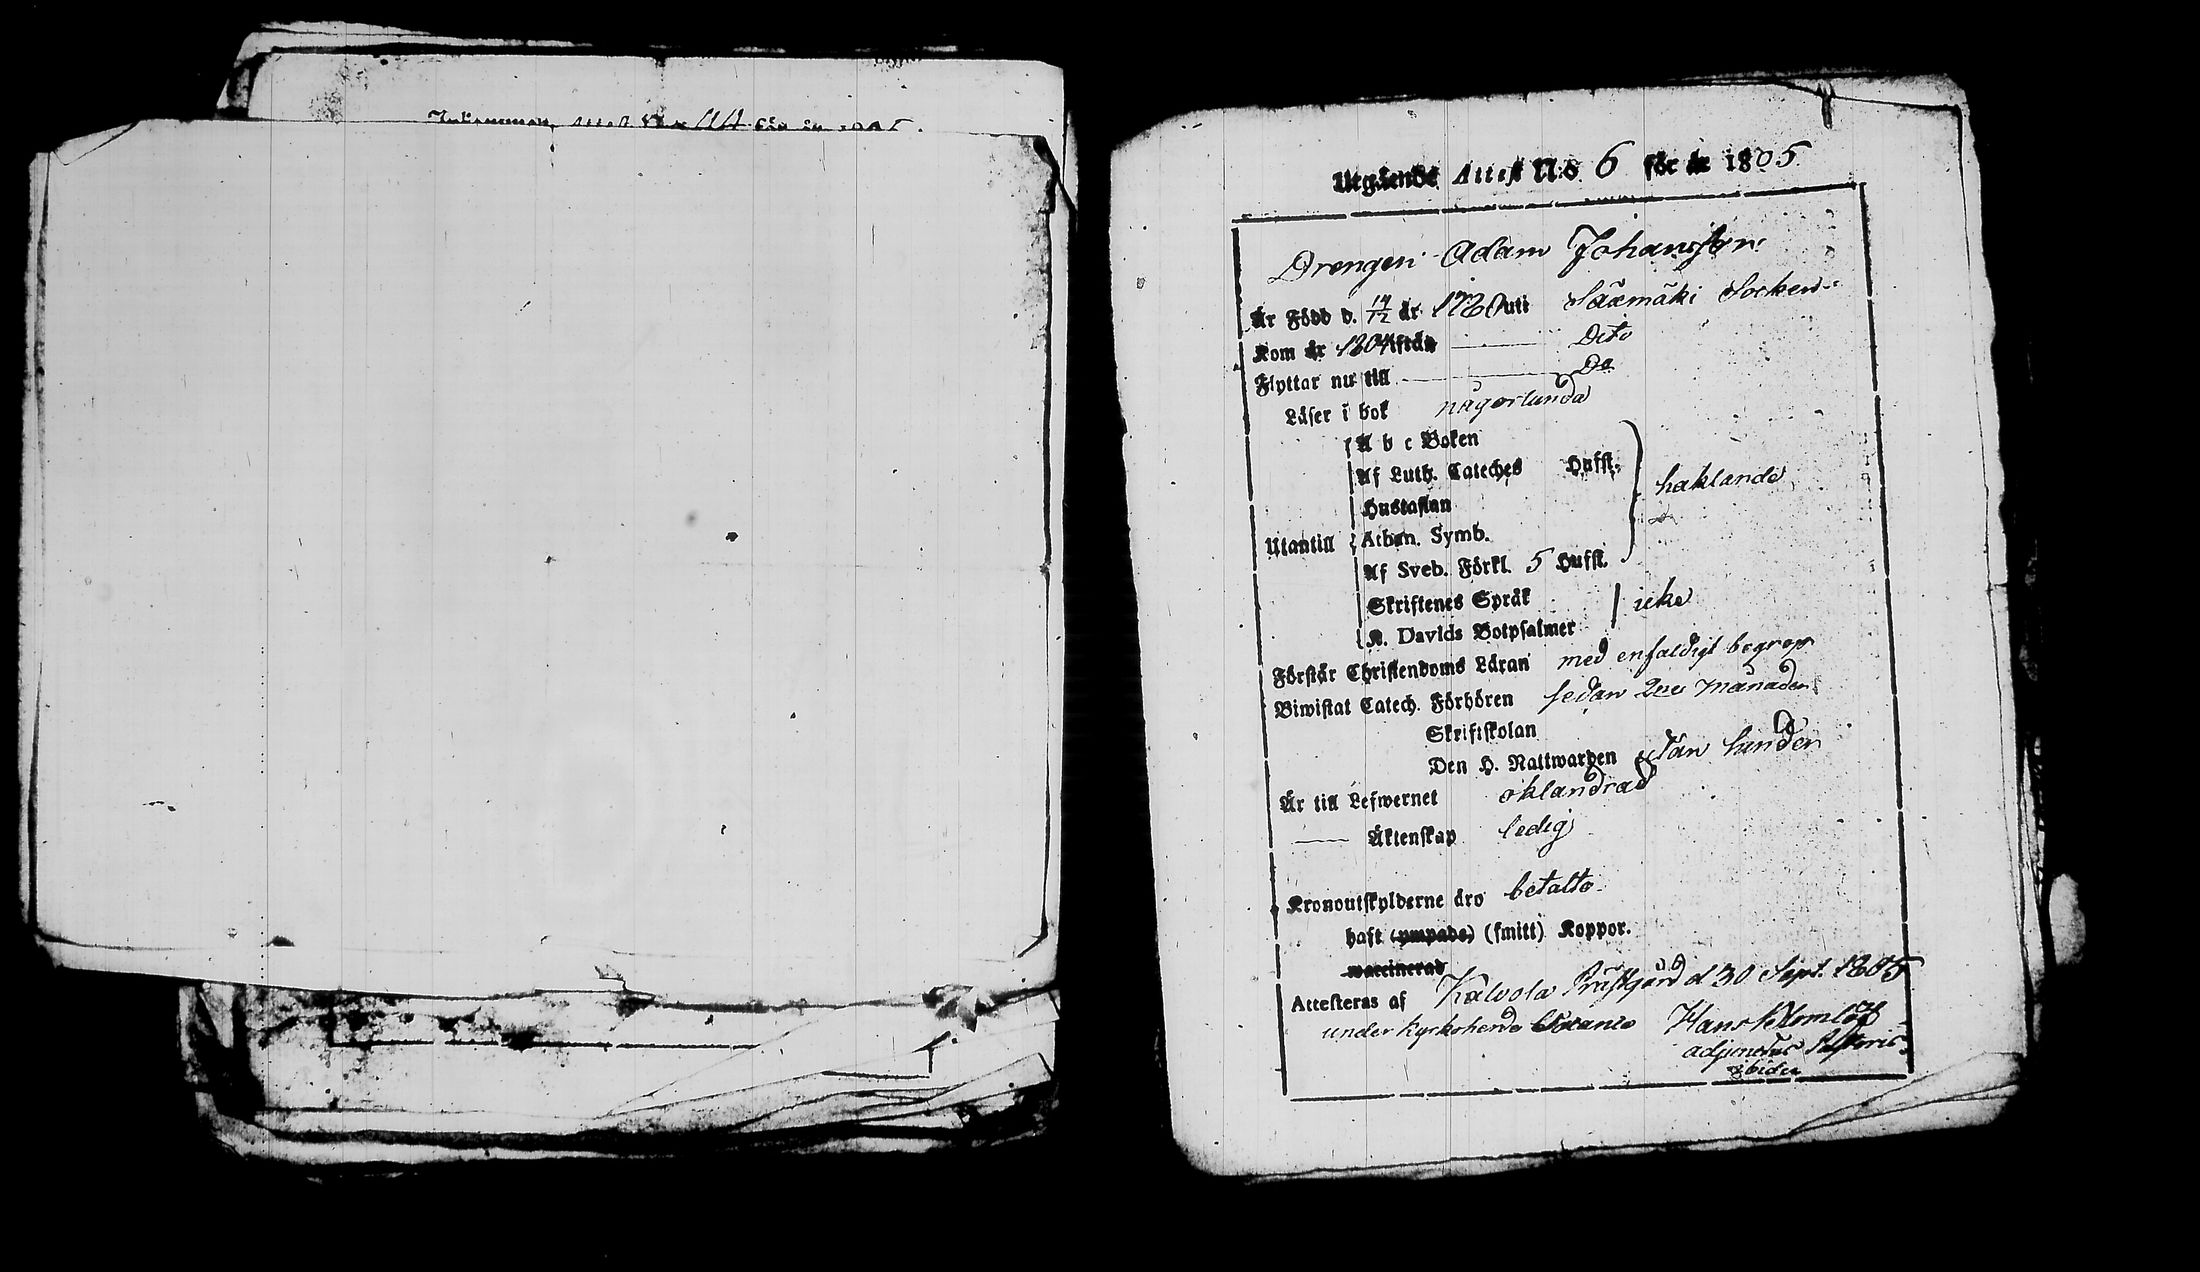 Inkommen Attest No 44 för år 1805.
Utgående Attest No 6 för år 1805
Drengen Adam Johansson
Är Född d. 14/12 år 1780 uti Säxmäki Socken
Kom år 1804 ifrån Dito
Flyttar nu till Do
Läser i bok någorlunda
A b c Boken
Af Luth. Cateches Hufst.
haklande
Hustaflan
Utantill Athan. Symb.
Af Sveb. Förkl. 5 Hufst.
Skriftenes Språk
icke
K. Davids Botpsalmer
Förstår Christendoms Läran med enfaldigt begrep
Biwistat Catech. Förhören sedan månaden
Skriftskolan
Den H. Nattwarden
Är till Lefwernet oklandrad
Äktenskap ledig
Kronoutskylderne äro betalte
haft (ympade) (smitt) Koppor.
waccinerad
Attesteras af Kalvola Prästgård d 30 Sept. 1805
under kyrkoherde
adjunctus Pastoris
ibidem